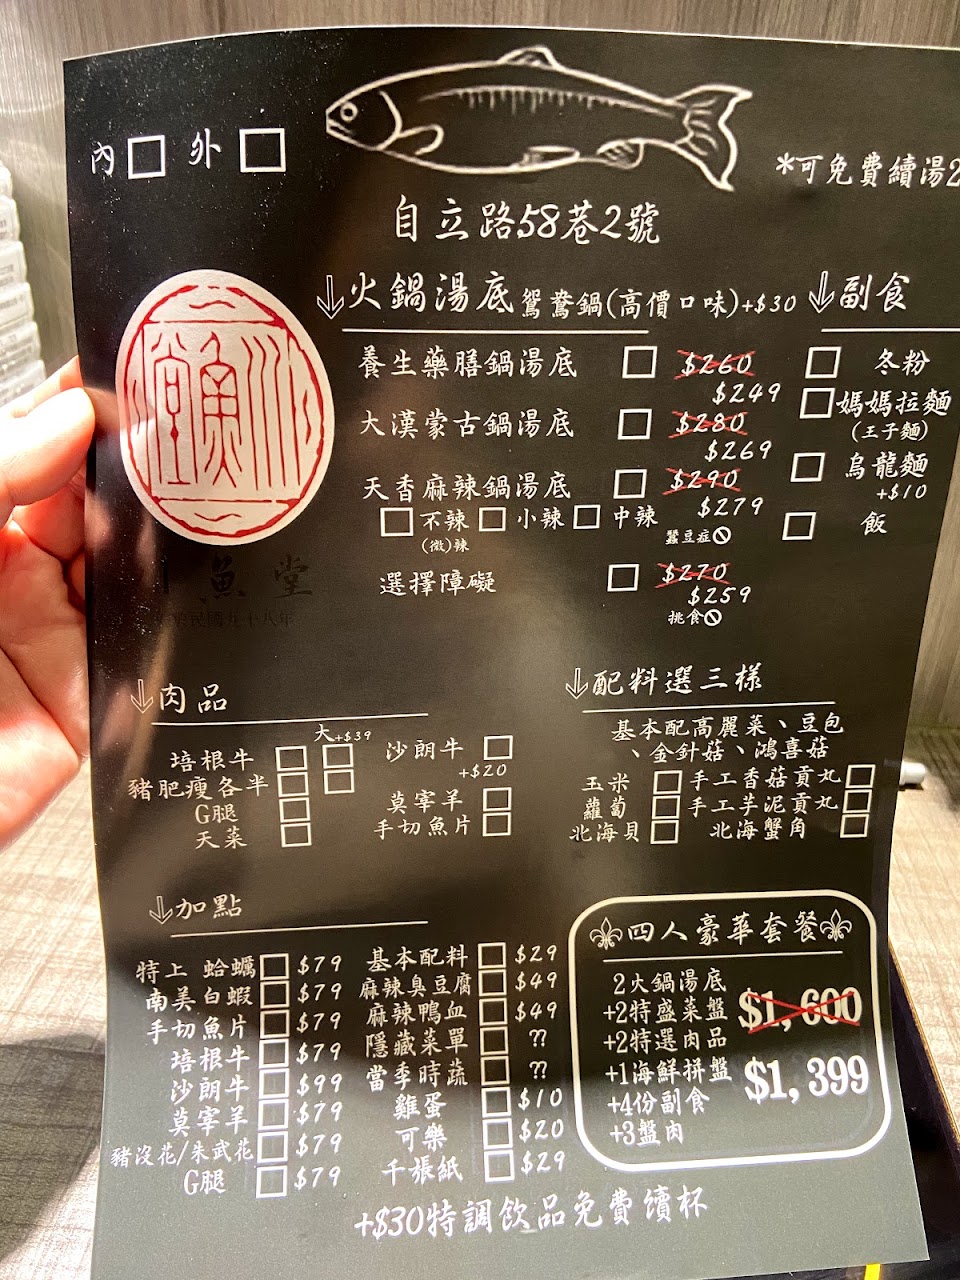 內□ 外□
*可免費續湯2
自立路58巷2號
火鍋湯底 鴛鴦鍋(高價口味)+$30
養生藥膳鍋湯底 □ $260
$249
大漢蒙古鍋湯底 □ $280
$269
天香麻辣鍋湯底 □ $290
$279
□不辣 □小辣 □中辣
(微)辣
蠶豆症🚫
選擇障礙 □ $270
$259
挑食🚫
副食
□ 冬粉
□ 媽媽拉麵
(王子麵)
□ 烏龍麵
+$10
□ 飯
川魚堂
魚堂
民國九十八年
肉品
大+$39
培根牛 □ □
豬肥瘦各半 □ □
G腿 □
天菜 □
沙朗牛 □
+$20
莫宰羊 □
手切魚片 □
配料選三樣
基本配高麗菜、豆包
、金針菇、鴻喜菇
玉米 □ 手工香菇貢丸 □
蘿蔔 □ 手工芋泥貢丸 □
北海貝 □ 北海蟹角 □
加點
特上 蛤蠣 □ $79
南美白蝦 □ $79
手切魚片 □ $79
培根牛 □ $79
沙朗牛 □ $99
莫宰羊 □ $79
豬沒花/朱武花 □ $79
G腿 □ $79
基本配料 □ $29
麻辣臭豆腐 □ $49
麻辣鴨血 □ $49
隱藏菜單 □ ??
當季時蔬 □ ??
雞蛋 □ $10
可樂 □ $20
千張紙 □ $29
四人豪華套餐
2火鍋湯底
+2特盛菜盤
+2特選肉品
+1海鮮拼盤
+4份副食
+3盤肉
$1,600
$1,399
+$30特調飲品免費續杯